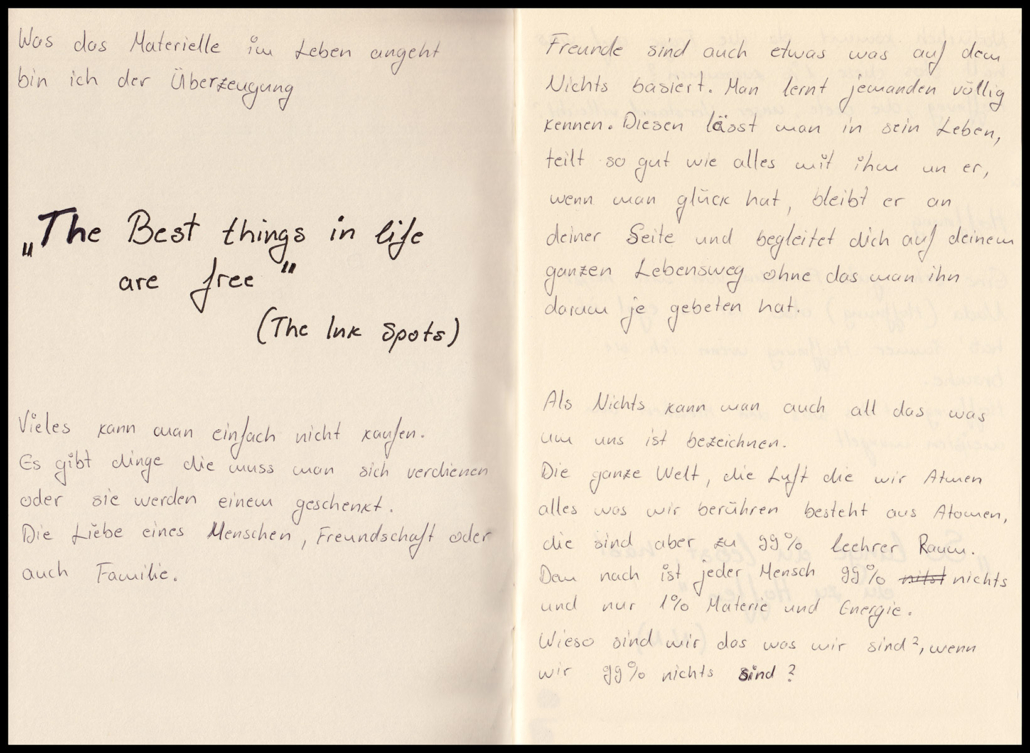 Was das Materielle im Leben angeht
bin ich der Überzeugung
„The Best things in life
are free"
(The Ink Spots)
Vieles kann man einfach nicht kaufen.
Es gibt dinge die muss man sich verdienen
oder sie werden einem geschenkt.
Die Liebe eines Menschen, Freundschaft oder
auch Familie.
Freunde sind auch etwas was auf dem
Nichts basiert. Man lernt jemanden völlig
kennen. Diesen lässt man in sein Leben,
teilt so gut wie alles mit ihm un er,
wenn man glück hat, bleibt er an
deiner Seite und begleitet dich auf deinem
ganzen Lebensweg ohne das man ihn
darum je gebeten hat.
Als Nichts kann man auch all das was
um uns ist bezeichnen.
Die ganze Welt, die Luft die wir Atmen
alles was wir berühren besteht aus Atomen,
die sind aber zu 99% leehrer Raum.
Dem nach ist jeder Mensch 99% nichts
und nur 1% Materie und Energie.
Wieso sind wir das was wir sind?, wenn
wir 99% nichts sind?